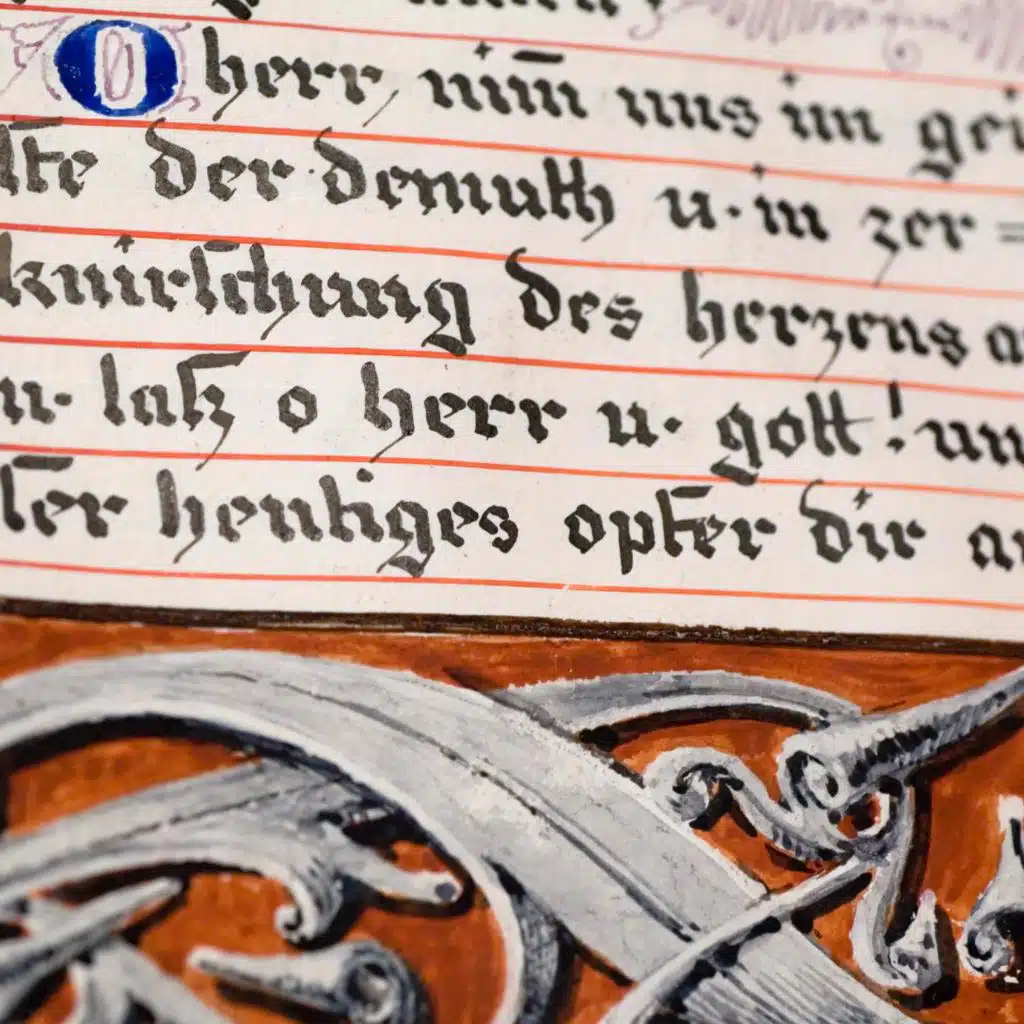 O herr, nim̄ uns im gei
ste der demuth u. in zer=
knirschung des herzens a
u. laß o herr u. gott! un
ser heutiges opfer dir a